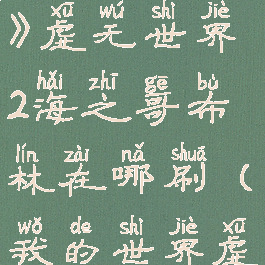 xū wú shì jiè
》虚无世界
hǎi zhī gē bù
2海之哥布
lín zài nǎ shuā
林在哪刷(
wǒ de shì jiè xū
我的世界虚